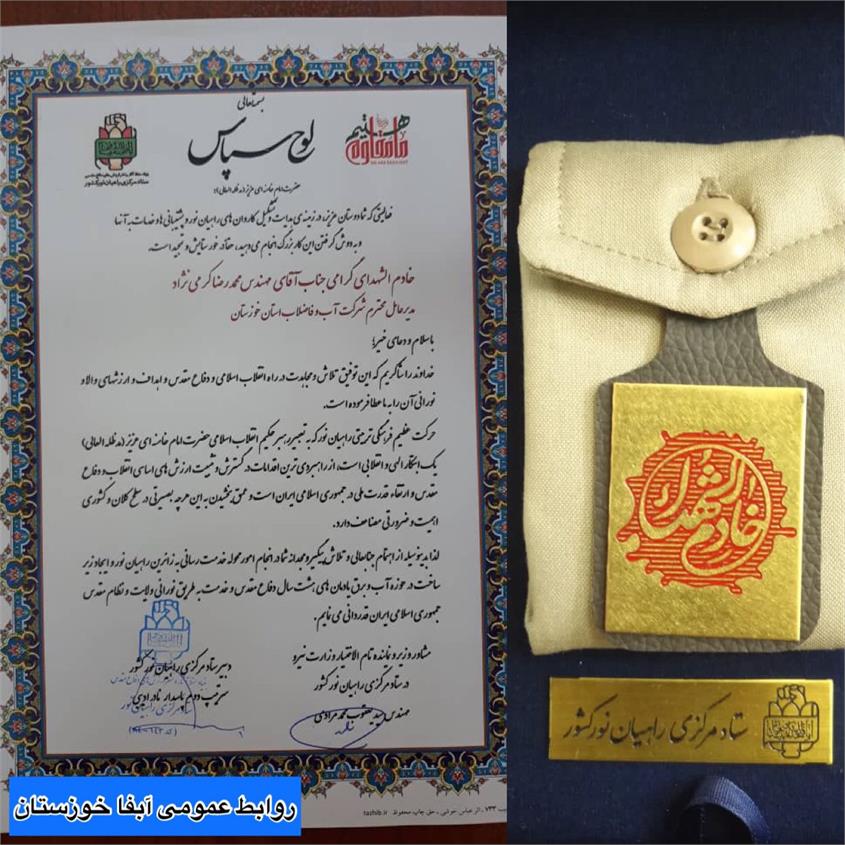 بسمه تعالی
لوح سپاس
ما مقاوم هستیم
WE ARE RESILIENT
ستاد مرکزی راهیان نور کشور
حضرت امام خامنه ای عزیز (مد ظله العالی):
فعالیتی که شما دوستان عزیز، در زمینه‌ی هدایت و تشکیل کاروان های راهیان نور و پشتیبانی ها و خدمات به آنها
و به دوش گرفتن این کار بزرگ انجام می دهید، حقاً در خور ستایش و تمجید است.
خادم الشهدای گرامی جناب آقای مهندس محمدرضا کرمی نژاد
مدیرعامل محترم شرکت آب و فاضلاب استان خوزستان
با سلام و دعای خیر؛
خداوند را شاکریم که این توفیق تلاش و مجاهدت در راه انقلاب اسلامی و دفاع مقدس و اهداف و ارزشهای والا و
نورانی آن را به ما عطا فرموده است.
حرکت عظیم فرهنگی تربیتی راهیان نور که به تعبیر رهبر حکیم انقلاب اسلامی حضرت امام خامنه ای عزیز (مد ظله العالی)
یک ابتکار الهی و انقلابی است، از راهبردی ترین اقدامات در گسترش و تثبیت ارزش های اساسی انقلاب و دفاع
مقدس و ارتقاء قدرت ملی در جمهوری اسلامی ایران است و عمق بخشیدن به این حرکت بصیرتی در سطح کلان و کشوری
اهمیت و ضرورتی مضاعف دارد.
لذا بدینوسیله از اهتمام جنابعالی و تلاش پیگیر و مجدانه شما در انجام امور محوله خدمت رسانی به زائرین راهیان نور و ایجاد زیر
ساخت در حوزه آب و برق یادمان های هشت سال دفاع مقدس و خدمت به طریق نورانی ولایت و نظام مقدس
جمهوری اسلامی ایران قدردانی می نمایم.
مشاور وزیر و نماینده تام الاختیار وزارت نیرو
در ستاد مرکزی راهیان نور کشور
مهندس سید یعقوب محمد مرادی
دبیر ستاد مرکزی راهیان نور کشور
سرتیپ دوم پاسدار
tazhib.ir
روابط عمومی آبفا خوزستان
خادم الشهداء
ستاد مرکزی راهیان نور کشور